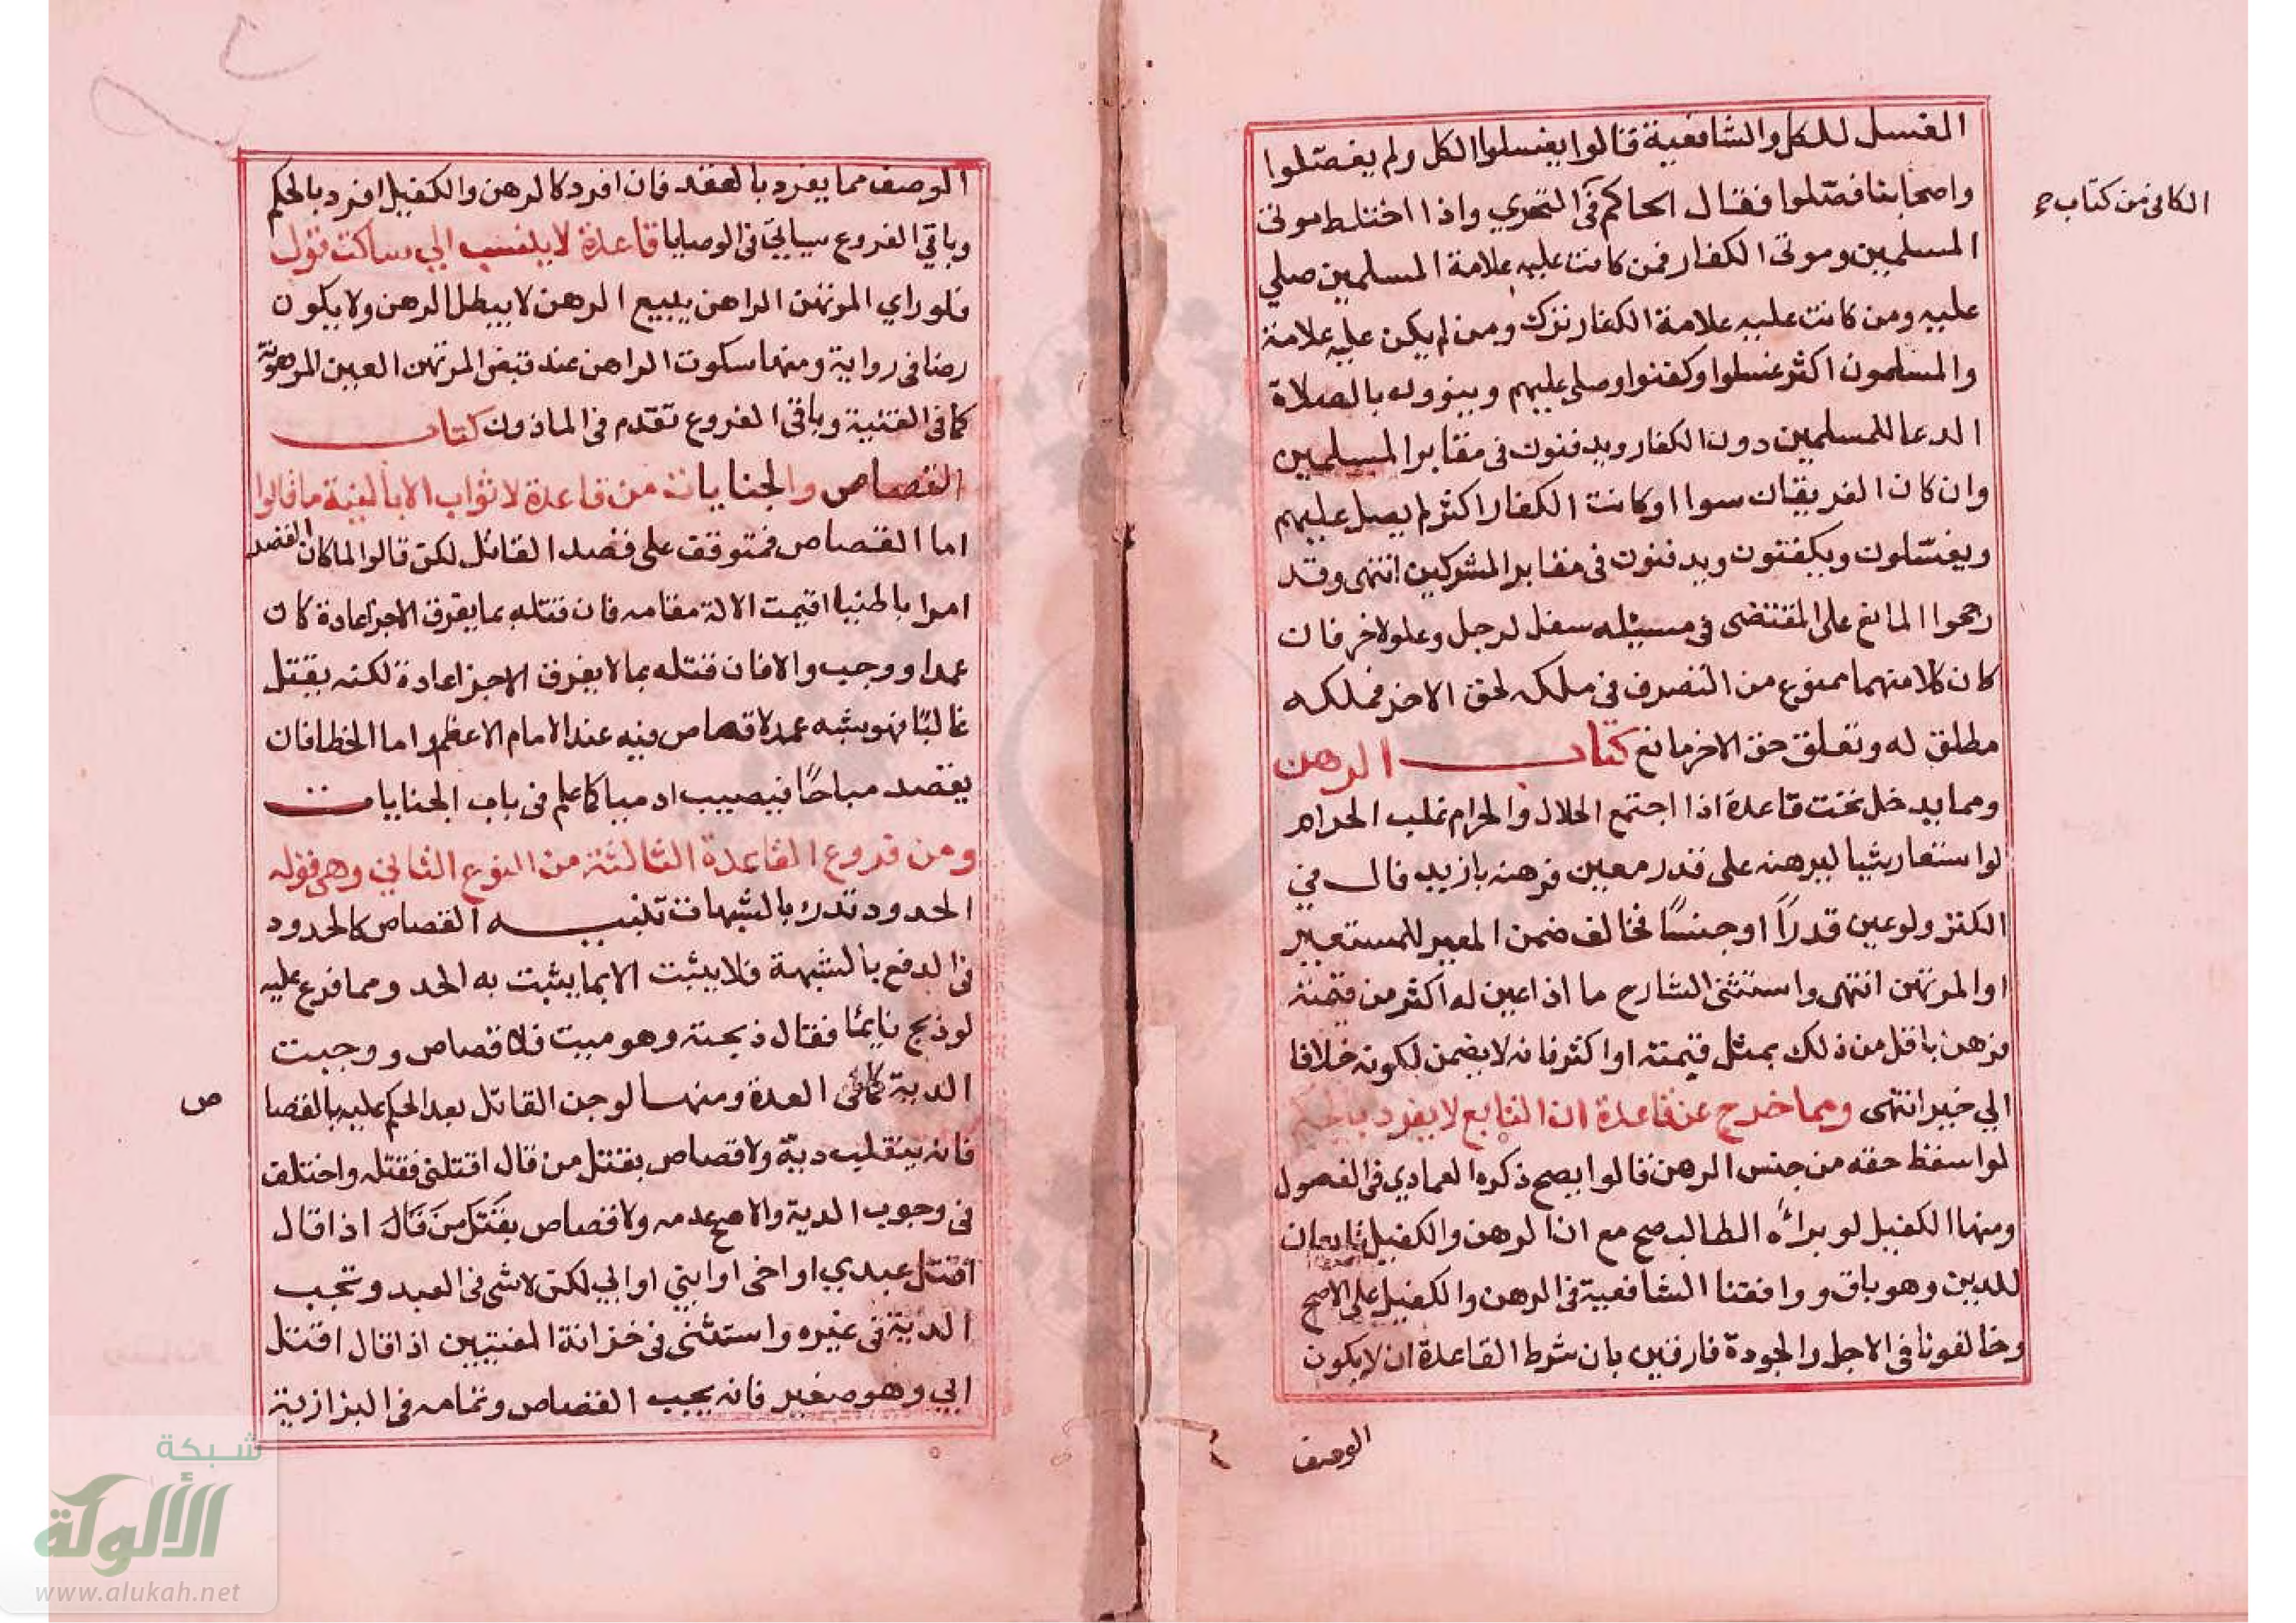 الغسل للكل والشافعية قالوا يغسلوا الكل ولم يفصّلوا
واصحابنا فصّلوا فقال الحاكم فى التحري واذا اختلط موتى
الكافى من كتاب
المسلمين وموتى الكفار فمن كانت عليه علامة المسلمين صلي
عليه ومن كانت عليه علامة الكفار ترك ومن لم يكن عليه علامة
والمسلمون اكثر غسلوا وكفنوا وصلى عليهم وينوون بالصلاة
الدعا للمسلمين دون الكفار ويدفنون فى مقابر المسلمين
وان كان الفريقان سوا او كانت الكفار اكثر لم يصل عليهم
ويغسّلون ويكفنون ويدفنون فى مقابر المشركين انتهى وقد
رجحوا المانع على المقتضى فى مسيئله سفل لرجل وعلو لاخر فان
كان كلا منهما ممنوع من التصرف فى ملكه لحق الاخر فملكه
مطلق له وتعلق حق الاخر مانع كتاب الرهن
ومما يدخل تحت قاعدة اذا اجتمع الحلال والحرام غلب الحرام
لو استعار شيا ليرهنه على قدر معين فرهنه بازيد قال في
الكنز ولو عين قدرًا او جنسًا فخالف ضمن المعير للمستعير
او المرتهن انتهى واستثنى الشارح ما اذا عين له اكثر من قيمته
فرهن باقل من ذلك بمثل قيمته او اكثر فانه لا يضمن لكونه خلافا
الي خير انتهى ومما خرج عن قاعدة ان التابع لا يفرد بالحكم
لو اسقط حقه من جنس الرهن قالوا يصح ذكره العمادي فى الفصول
ومنها الكفيل لو براءه الطالب صح مع ان الرهن والكفيل تابعان
للدين وهو باق ووافقنا الشافعية فى الرهن والكفيل على الاصح
وخالفونا فى الاجل والجودة فارقين بان شرط القاعدة ان لا يكون
الوصف
الوصف مما يفرد بالعقد فان افرد كالرهن والكفيل افرد بالحكم
وباقي الفروع سيالي فى الوصايا قاعدة لا ينسب الي ساكت قول
فلو راي المرتهن الراهن يبيع الرهن لا يبطل الرهن ولا يكون
رضا فى رواية ومنها سكوت الراهن عند قبض المرتهن العين المرهونة
كما فى القنية وباقى الفروع تقدم فى الماذون كتاب
القصاص والجنايات من قاعدة لا ثواب الا بالنية ما قالوا
اما القصاص فمتوقف على قصد القاتل لكن قالوا لما كان القصد
امرا باطنيا اقيمت الالة مقامه فان قتله بما يفرق الاجزا عادة كان
عمدا ووجب والا فان قتله بما لا يفرق الاجزا عادة لكنه يقتل
غالبًا فهو شبه عمد لا قصاص فيه عند الامام الاعظم واما الخطا فان
يقصد مباحًا فيصيب ادميا كما علم فى باب الجنايات
ومن فروع القاعدة الثالثة من النوع الثاني وهى قوله
الحدود تدرء بالشبهات تنبيه القصاص كالحدود
فى الدفع بالشبهة فلا يثبت الا بما يثبت به الحد ومما فرع عليه
لو ذبح نايمًا فقال ذبحته وهو ميت فلا قصاص ووجبت
الدية كما فى العدة ومنها لو جن القاتل بعد الحكم عليه بالقصا
ص
فانه ينقلب ديّة ولا قصاص بقتل من قال اقتلنى فقتله واختلف
فى وجوب الدية والاصح عدمه ولا قصاص بقتل من قال اذا قال
اقتل عبدي او اخى او ابني او ابي لكن لا شى فى العبد وتجب
الدية فى غيره واستثنى فى خزانة المفتيين اذا قال اقتل
ابي وهو صغير فانه يجب القصاص وتمامه فى البزازية
شبكة
الألوكة
www.alukah.net